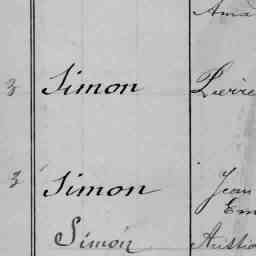 Ama
3 Simon Pierre
3 Simon Jean
Em
Simon Aristi